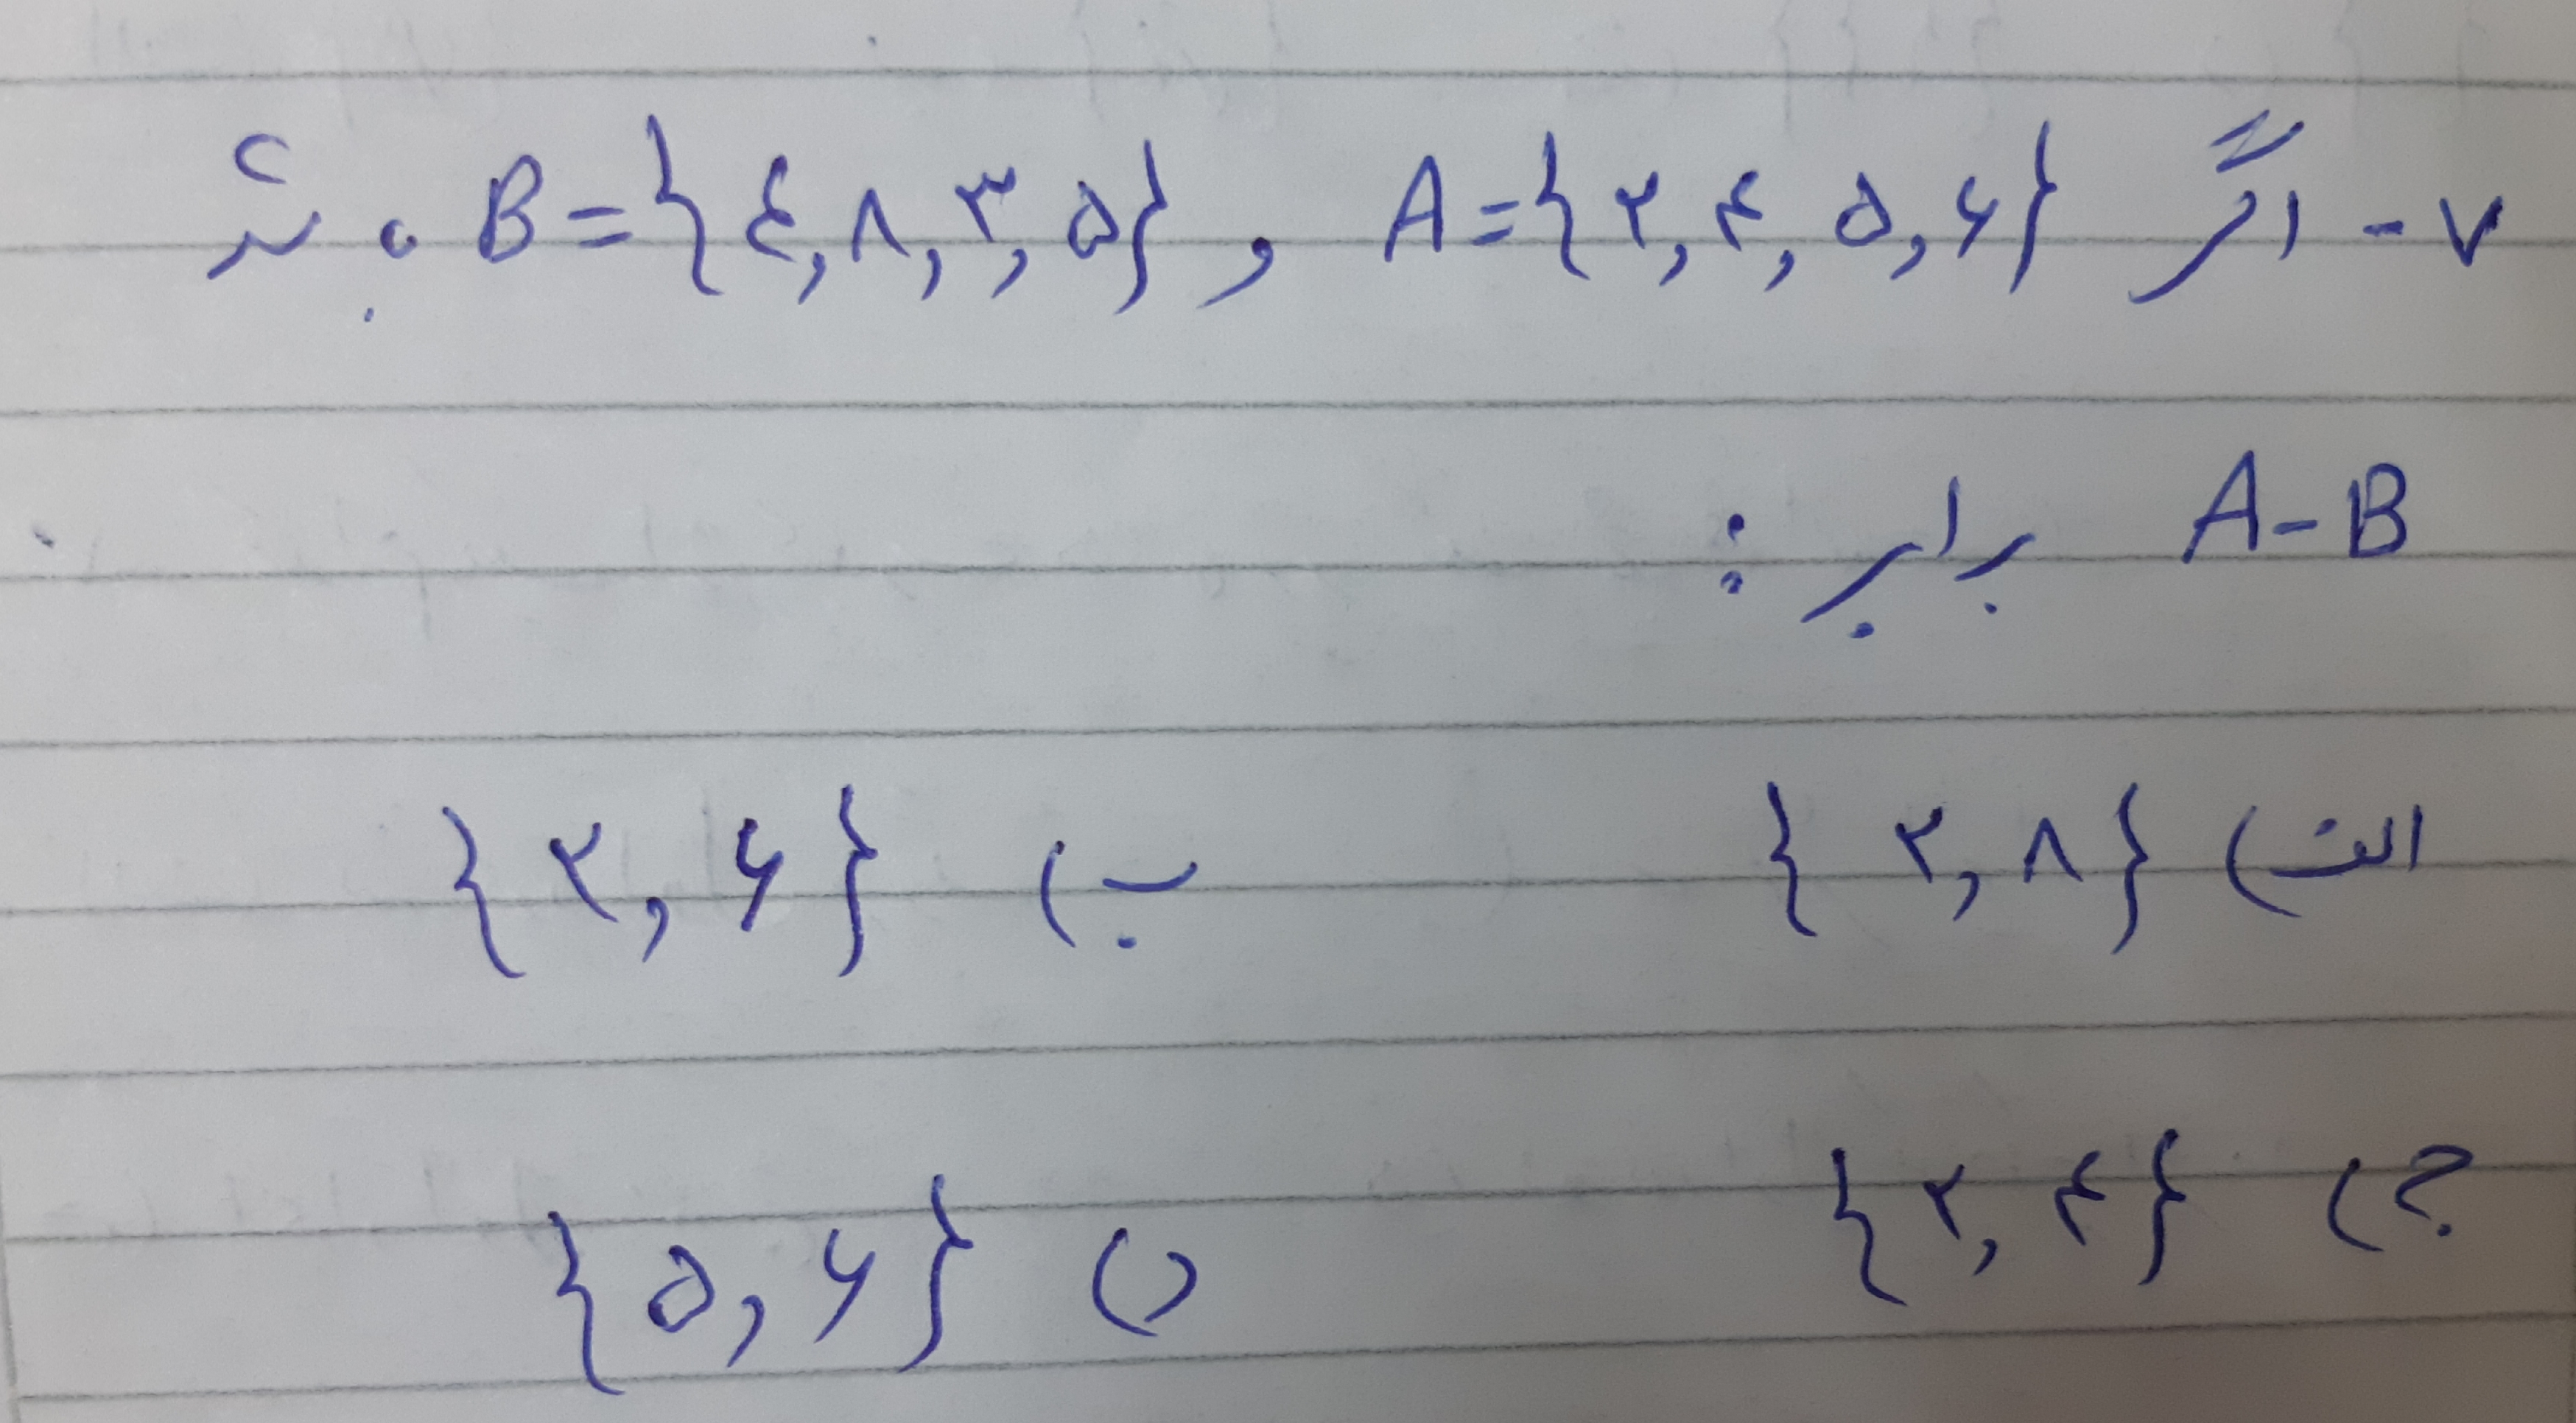 ۷- اگر A={۲,۴,۵,۶} , B={٤,۸,۳,۵} باشد
A-B برابر :
الف) {۲,۸} ب) {۲,۶}
ج) {۲,۴} د) {۵,۶}